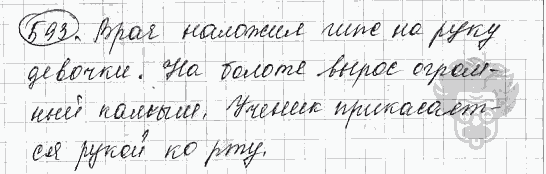 593. Врач наложил гипс на руку
девочки. На болоте вырос огром-
ный камыш. Ученик прикасает-
ся рукой ко рту.